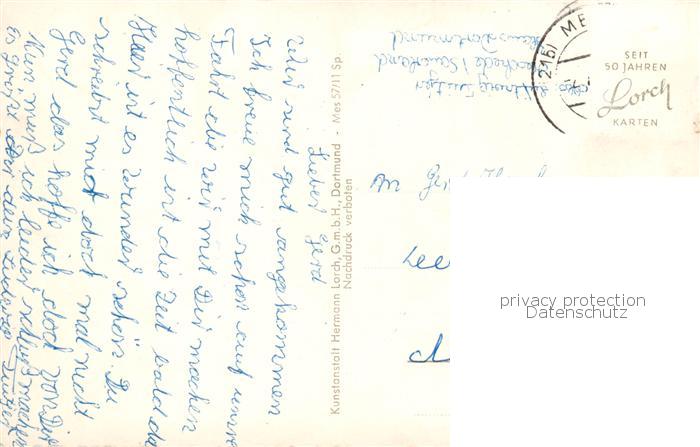 Lieber Gerd
Wir sind gut angekommen
Ich freue mich schon auf unsre
Fahrt die wir mit Dir machen
hoffentlich ist die Zeit bald da
Hier ist es wunder schön. Du
schreibst mir doch mal nicht
Gerd das hoffe ich doch von Dir
Nun muß ich leider schluß machen
Es grüßt Dich dein
Kunstanstalt Hermann Lorch, G.m.b.H., Dortmund - Mes 57/11 Sp
Nachdruck verboten
Sauerland
Haus Dortmund
21b
ME
SEIT
50 JAHREN
Lorch
KARTEN
An
privacy protection
Datenschutz